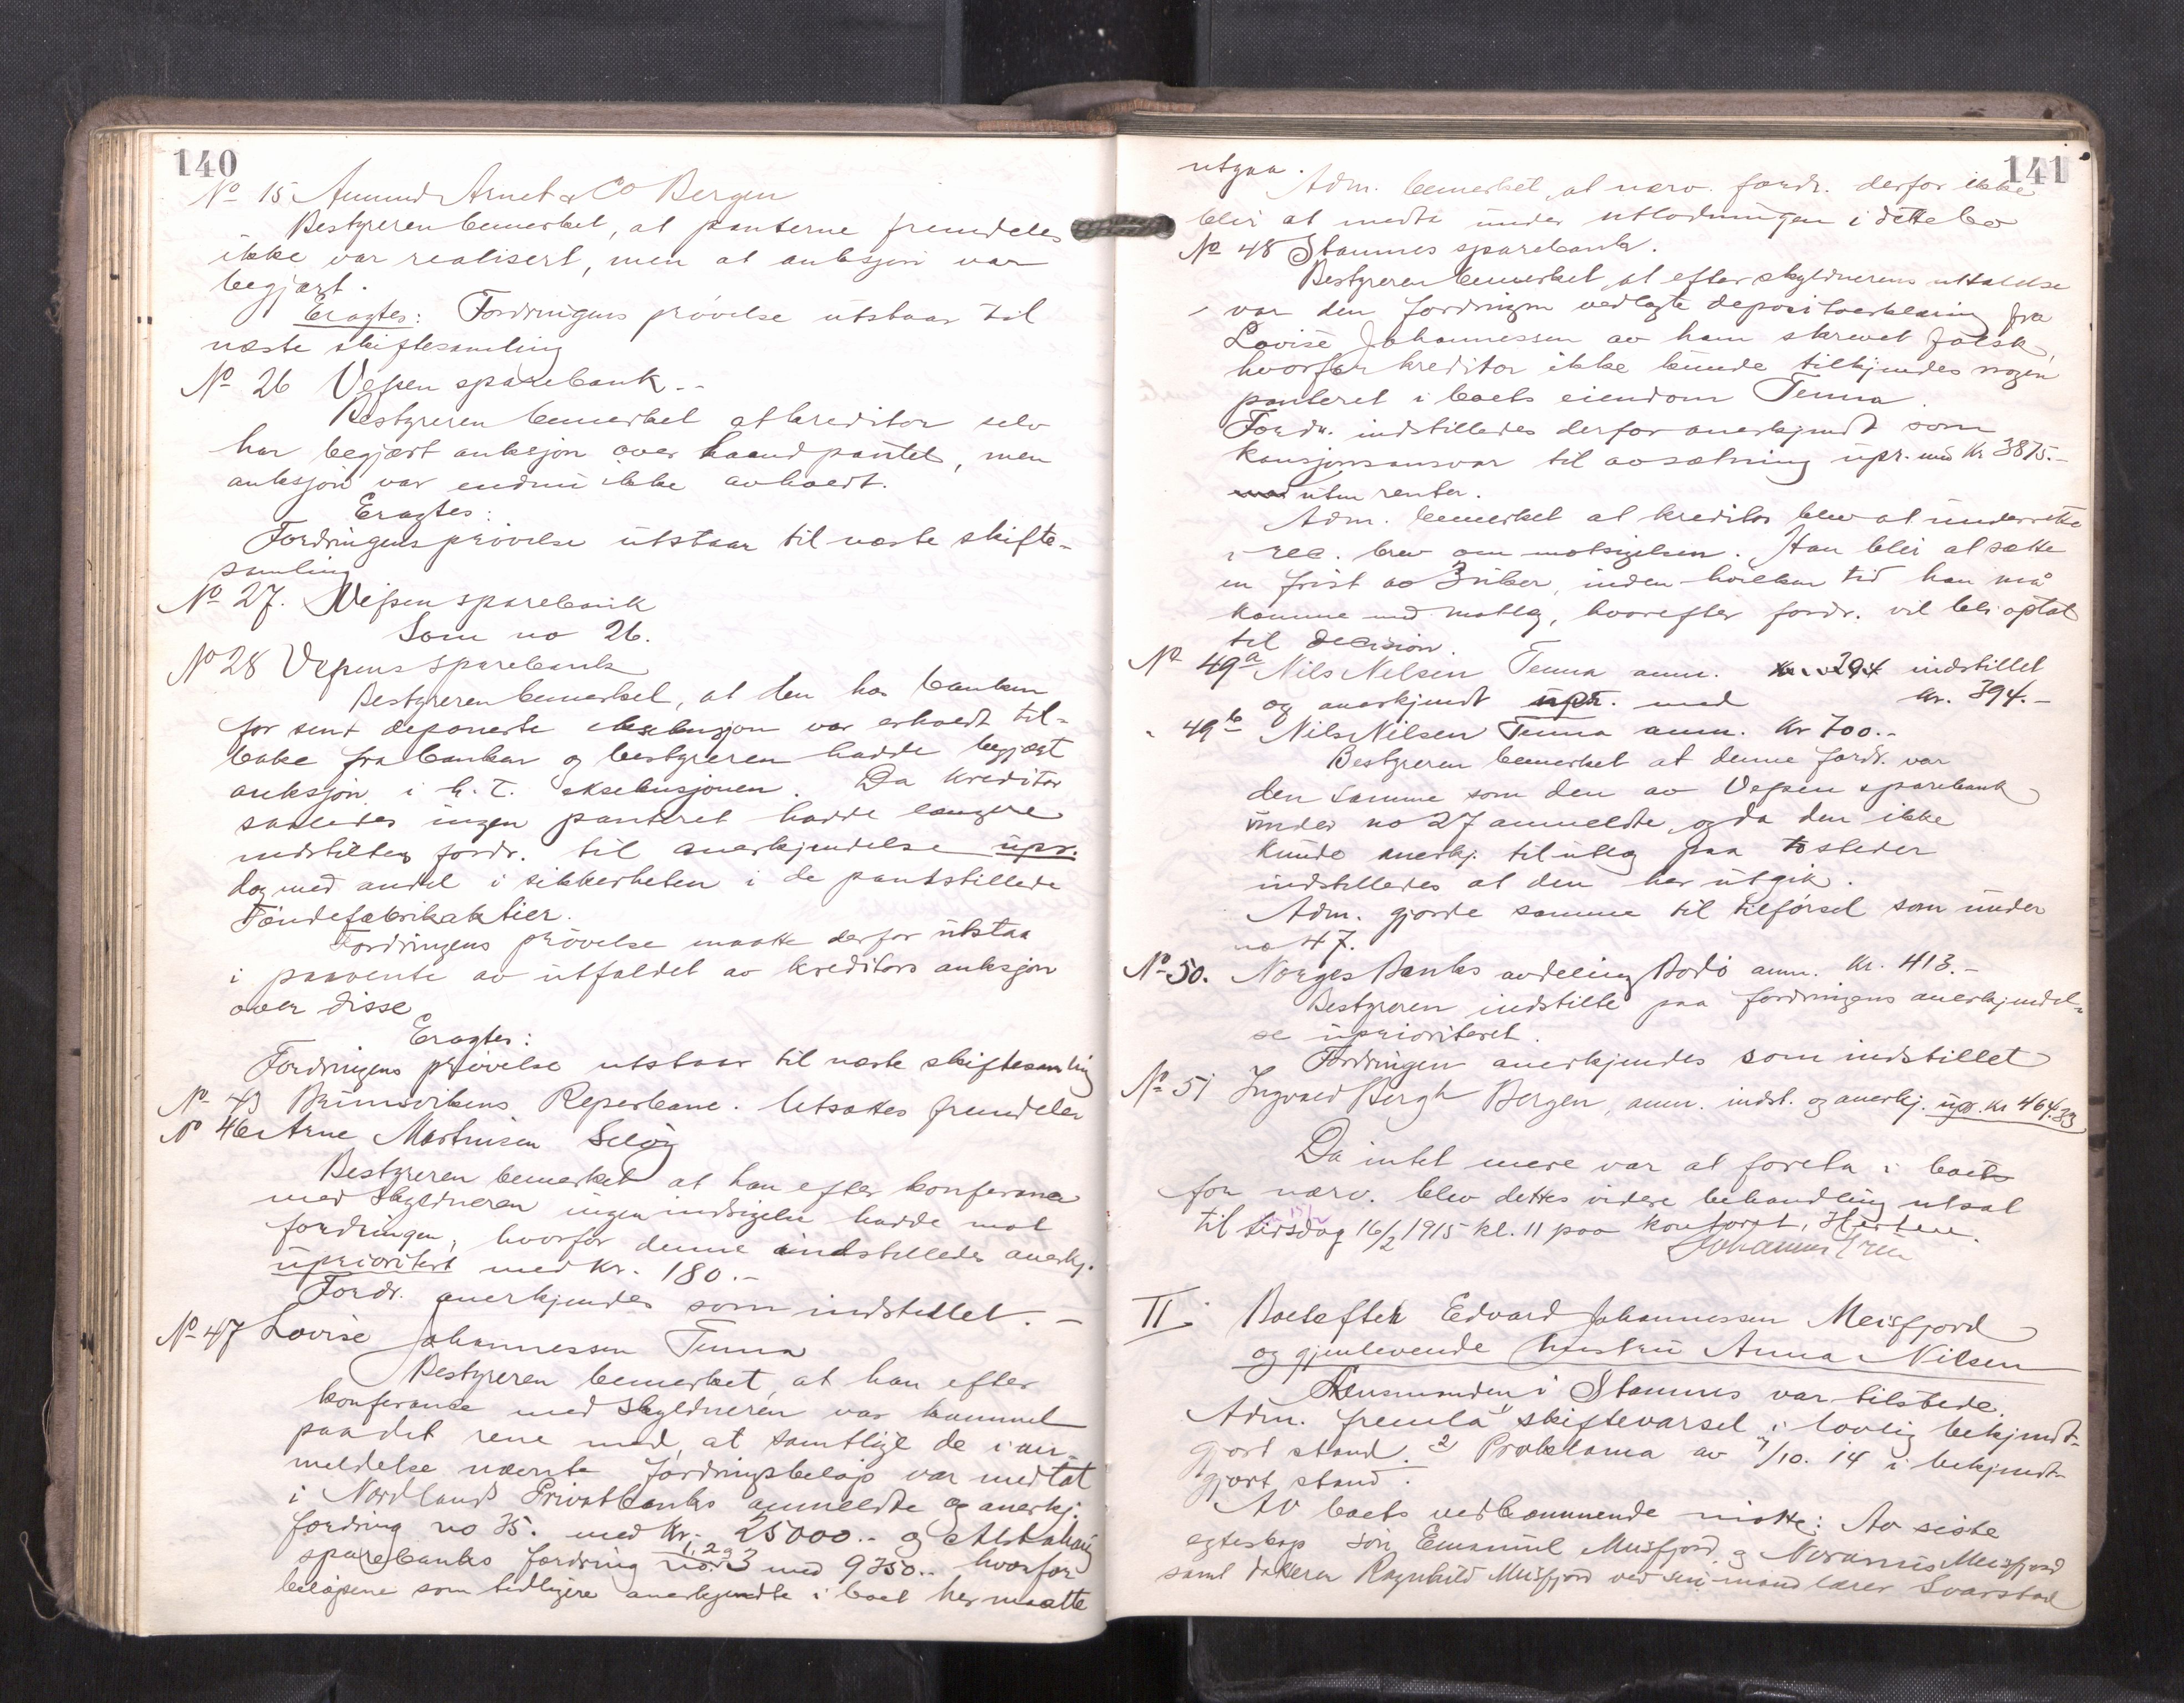 140
No 15 Amund Arnet & Co Bergen
Bestyreren bemerket, at panterne fremdeles
ikke var realisert, men at auksjon var
begjært.
Eragtes: Fordringens prövelse utstaar til
næste skiftesamling
No 26 Vefsen sparebank..
Bestyreren bemerket at kreditor selv
har begjært auksjon over haandpantet, men
auksjon var endnu ikke avholdt.
Eragtes:
Fordringens prövelse utstaar til næste skifte-
samling
No 27. Vefsen sparebank
Som no 26.
No 28 Vefsens sparebank
Bestyreren bemerket, at den hos banken
for sent deponerte eksekusjon var erholdt til-
bake fra banken og bestyreren hadde begjært
auksjon i h. t. eksekusjonen. Da kreditor
saaledes ingen panteret hadde længere
indstilles fordr. til anerkjendelse upr.
dog med andel i sikkerheten i de pantstillede
Töndefabrikaktier.
Fordringens prövelse maatte derfor utstaa
i paavente av utfaldet av kreditors auksjon
over disse
Eragtes:
Fordringens prövelse utstaar til næste skiftesamling
No 43 Brunsvikens Reperbane. Utsattes fremdeles
No 46 Arne Martinsen Selöy
Bestyreren bemerket at han efter konferance
med skyldneren ingen indsigelse hadde mot
fordringen, hvorfor denne indstilledes anerkj.
uprioritert med kr. 180.-
Fordr. anerkjendes som indstillet. -
No 47 Lovise Johannessen Tenna
Bestyreren bemerket, at han efter
konferance med skyldneren var kommet
paa det rene med, at samtlige de i an-
meldelse nævnte fordringsbelöp var medtat
i Nordlands Privatbanks anmeldte og anerkj.
fordring no 35. med kr. 25000.. og Alstahaug
sparebanks fordring no. 1, 2 og 3 med 9750.. hvorfor
belöpene som tidligere anerkjendte i boet her maatte
141
utgaa.
Adm. bemerket, at nærv. fordr. derfor ikke
blir at medta under utlodningen i dette bo
No 48 Stamnes sparebank.
Bestyreren bemerket, at efter skyldnerens uttalelse
var den fordringen vedlagte depositoerklæring fra
Lovise Johannessen av ham skrevet falsk,
hvorfor kreditor ikke kunde tilkjendes nogen
panteret i boets eiendom Tenna.
Fordr. indstilledes derfor anerkjendt som
kausjonsansvar til avsætning upr. med kr 3875.-
uten renter.
Adm. bemerket at kreditor blev at underrette
i rec. brev om motsigelsen. Han blir at sætte
en frist av 3 uker, inden hvilken tid han må
komme med motlæg, hvorefter fordr. vil bli optat
til decision.
No 49a Nils Nelsen Tenna anm. kr. 394 indstillet
og anerkjendt upr. med kr. 394.-
" 49b Nils Nilsen Tenna anm. kr 700.-
Bestyreren bemerket at denne fordr. var
den samme som den av Vefsen sparebank
under no 27 anmeldte, og da den ikke
kunde anerkj. til utlæg paa to steder
indstilledes at den her utgik.
Adm. gjorde samme til tilförsel som under
no 47.
No 50. Norges Banks avdeling Bodö anm. kr. 413.-
Bestyreren indstilte paa fordringens anerkjendel-
se uprioriteret.
Fordringen anerkjendes som indstillet
No 51 Ingvald Bergh Bergen, anm. indst. og anerkj. upr. kr 464.33
Da intet mere var at foreta i boet
for nærv. blev dettes videre behandling utsat
til tirsdag 16/2 1915 kl. 11 paa kontoret. Hævet.
II. Boet efter Edvard Johannessen Meisfjord
og gjenlevende hustru Anna Nilsen
Lensmanden i Stamnes var tilstede.
Adm. fremla 1) skiftevarsel i lovlig bekjendt-
gjort stand. 2) Proklama av 7/10. 14 i bekjendt-
gjort stand.
Av boets vedkommende mötte: Av siste
egteskap sön Emanuel Meisfjord og Meisfjord
samt datteren Ragnhild Meisfjord ved sin mand lærer Svarstad